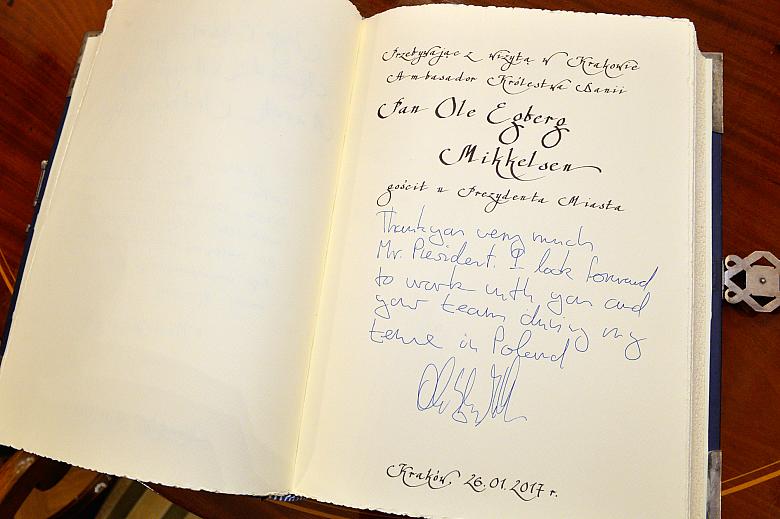 Przebywając z wizytą w Krakowie
Ambasador Królestwa Danii
Pan Ole Egberg
Mikkelsen
gościł u Prezydenta Miasta
Thank you very much
Mr. President. I look forward
to work with you and
your team during my
tenure in Poland
Kraków, 26.01.2017 r.